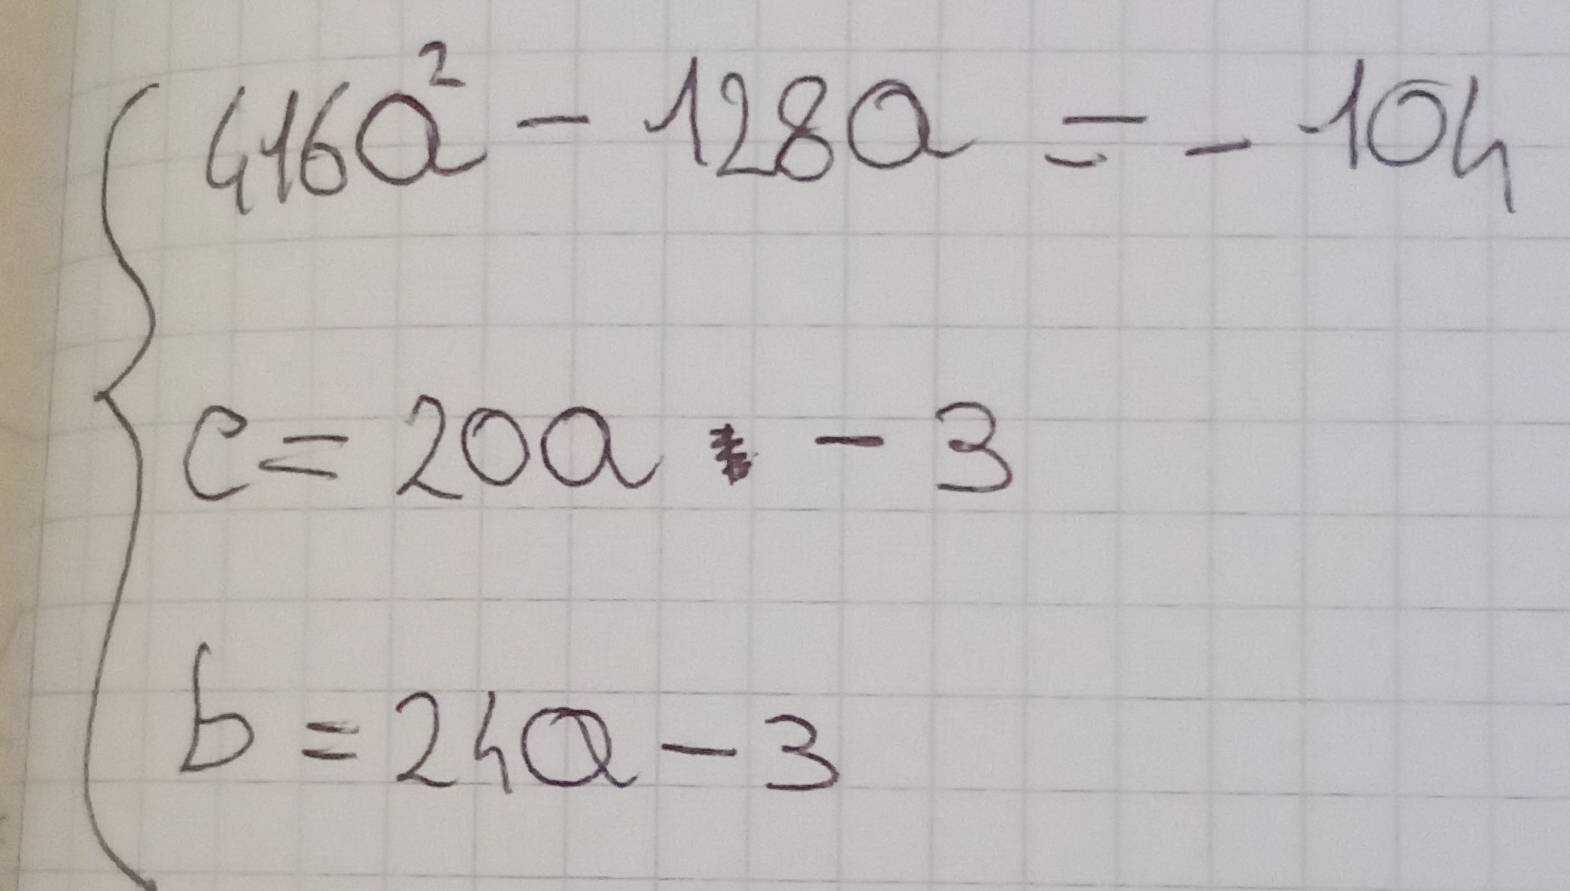 416a² - 128a = - 104
c = 20a - 3
b = 24a - 3